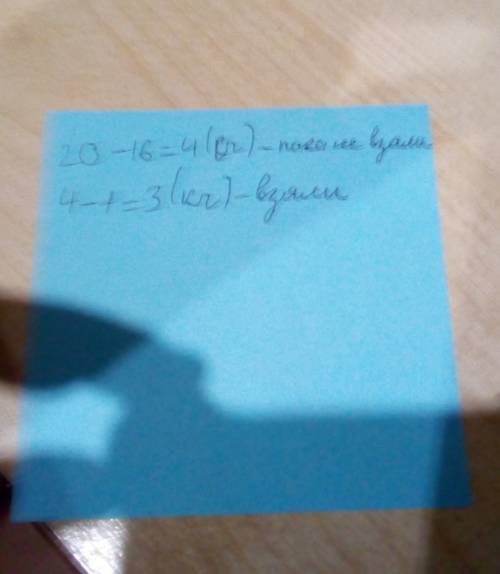 20 - 16 = 4 (кг) - пока не взяли
4 - 1 = 3 (кг) - взяли